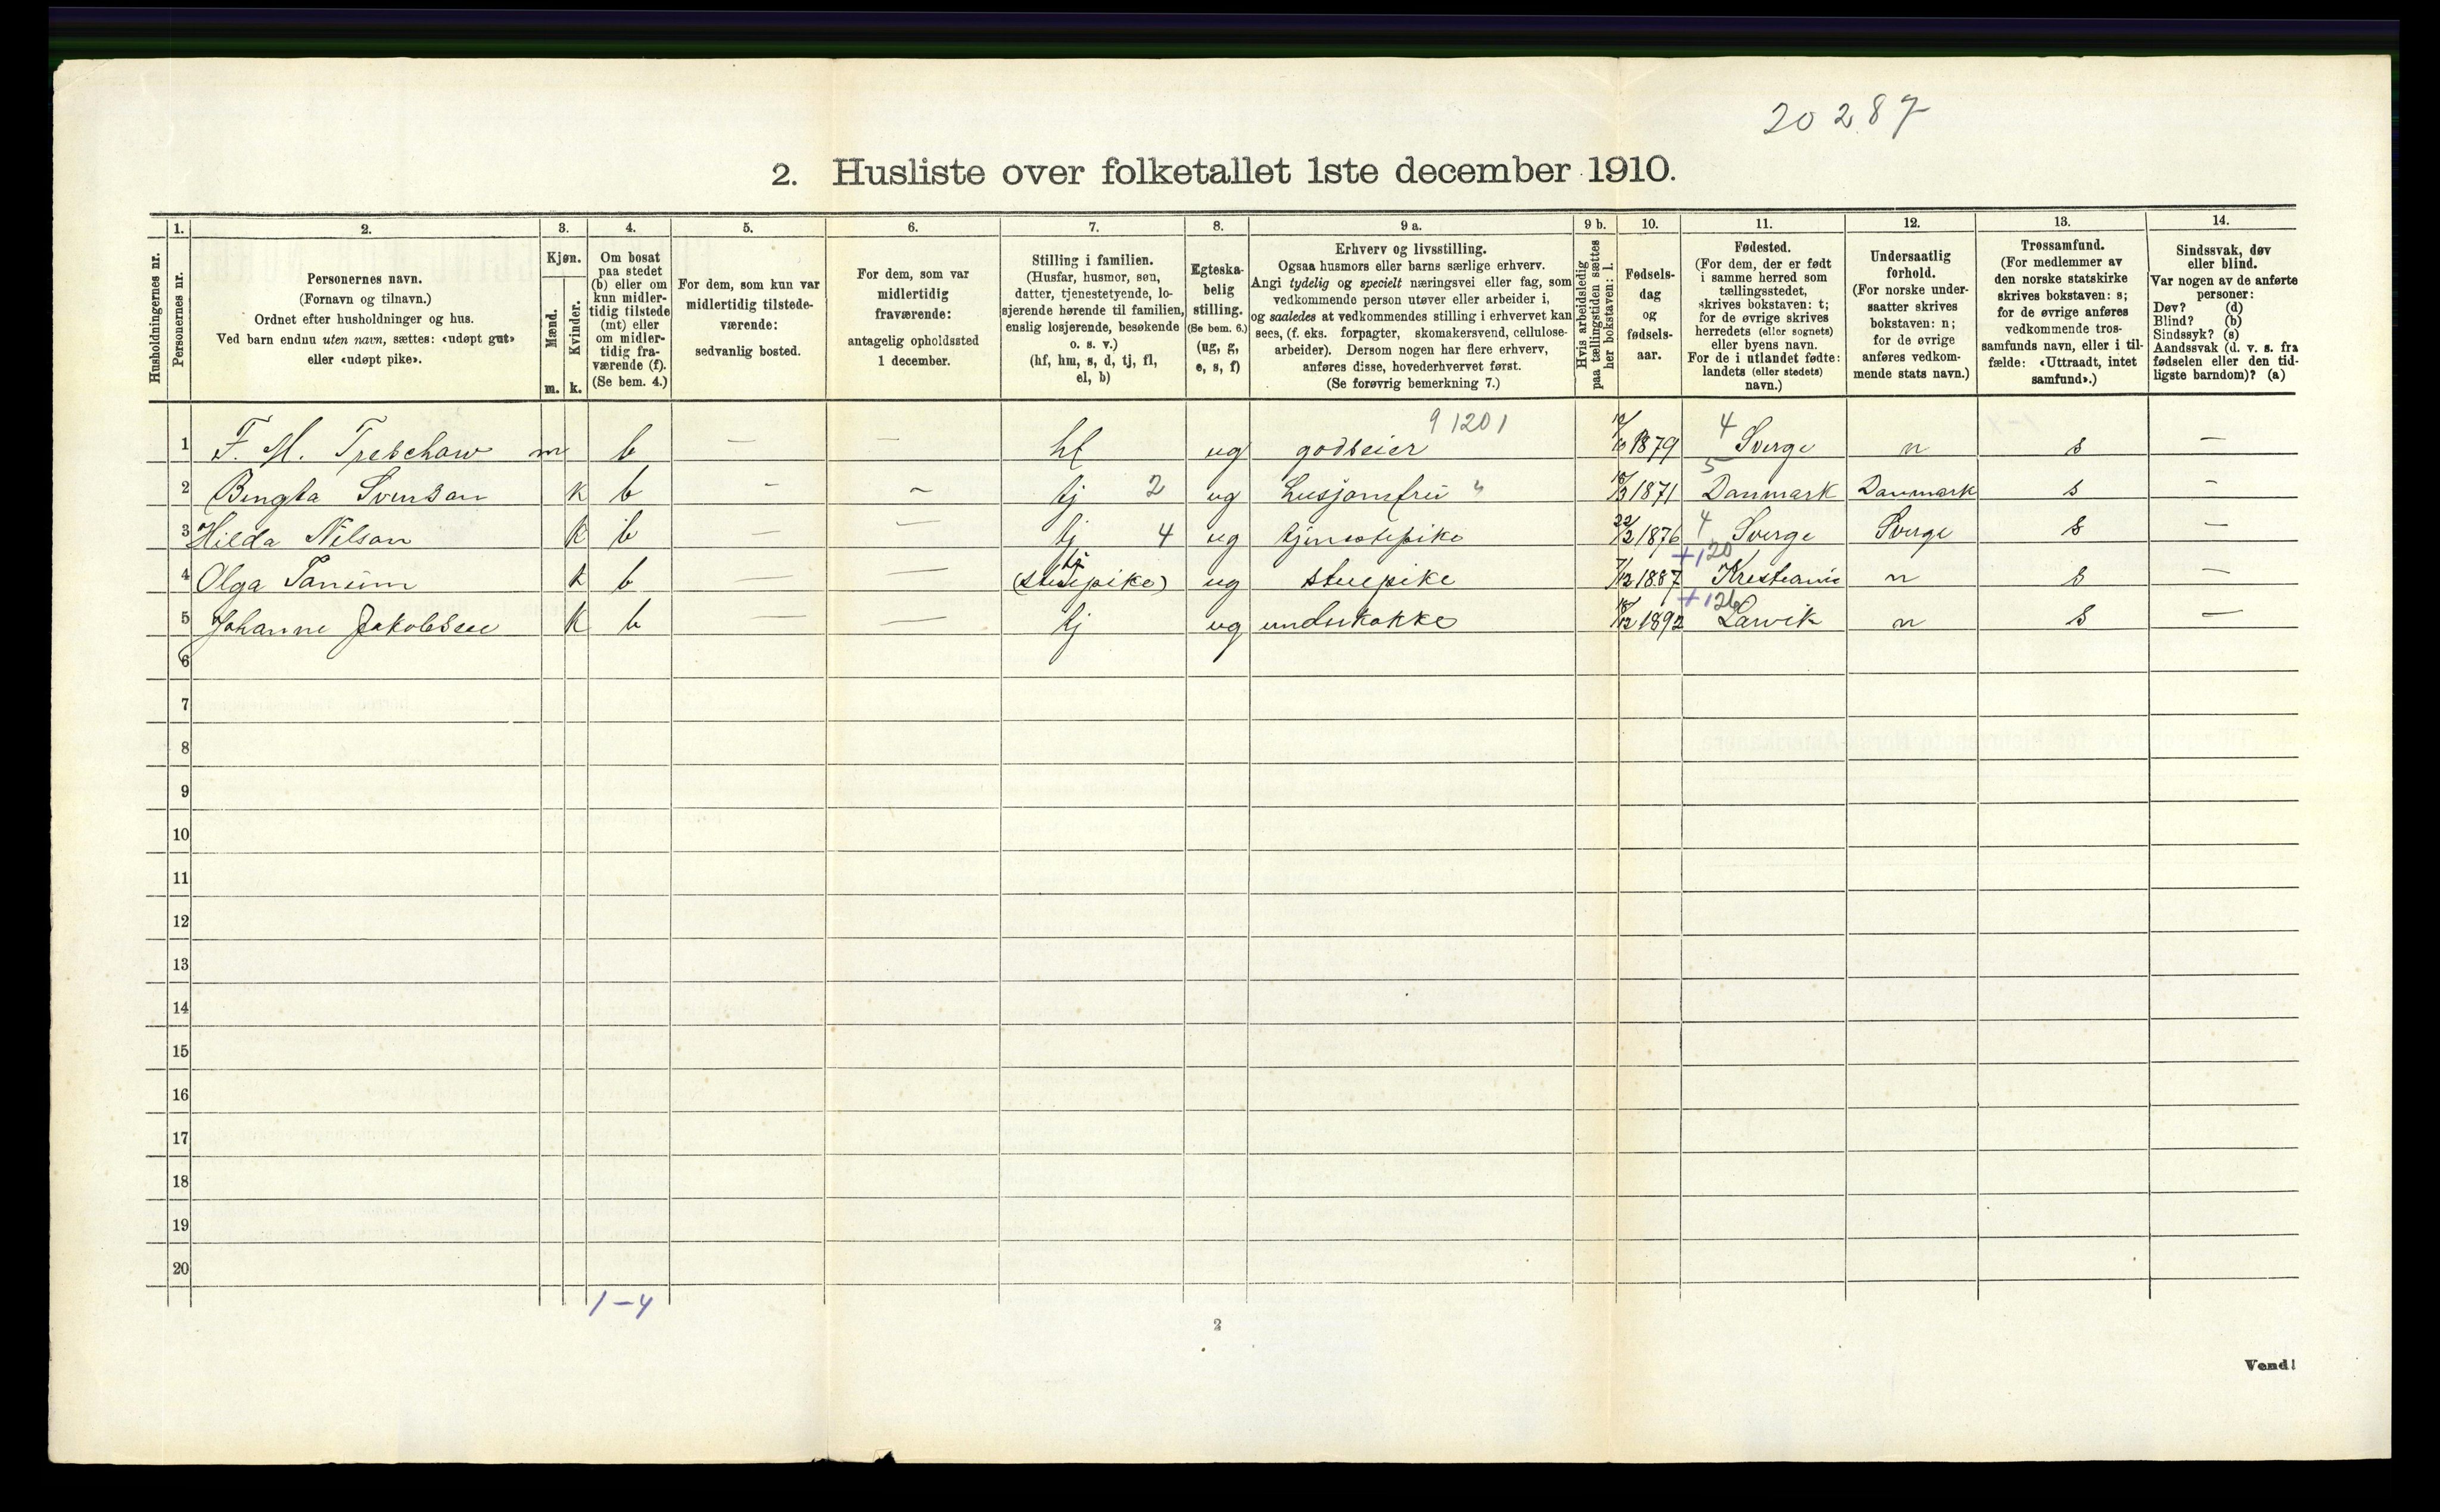 20 287
2. Husliste over folketallet 1ste december 1910.
1. 2. 3. 4. 5. 6. 7. 8. 9 a. 9 b. 10. 11. 12. 13. 14.
Husholdningernes nr.
Personernes nr.
Personernes navn.
(Fornavn og tilnavn.)
Ordnet efter husholdninger og hus.
Ved barn endnu uten navn, sættes: «udøpt gut»
eller «udøpt pike».
Kjøn.
Mænd.
Kvinder.
m. k.
Om bosat
paa stedet
(b) eller om
kun midler-
tidig tilstede
(mt) eller
om midler-
tidig fra-
værende (f).
(Se bem. 4.)
For dem, som kun var
midlertidig tilstede-
værende:
sedvanlig bosted.
For dem, som var
midlertidig
fraværende:
antagelig opholdssted
1 december.
Stilling i familien.
(Husfar, husmor, søn,
datter, tjenestetyende, lo-
sjerende hørende til familien,
enslig losjerende, besøkende
o. s. v.)
(hf, hm, s, d, tj, fl,
el, b)
Egteska-
belig
stilling.
(Se bem. 6.)
(ug, g,
e, s, f)
Erhverv og livsstilling.
Ogsaa husmors eller barns særlige erhverv.
Angi tydelig og specielt næringsvei eller fag, som
vedkommende person utøver eller arbeider i,
og saaledes at vedkommendes stilling i erhvervet kan
sees, (f. eks. forpagter, skomakersvend, cellulose-
arbeider). Dersom nogen har flere erhverv,
anføres disse, hovederhvervet først.
(Se forøvrig bemerkning 7.)
Hvis arbeidsledig
paa tællingstiden sættes
her bokstaven: l.
Fødsels-
dag
og
fødsels-
aar.
Fødested.
(For dem, der er født
i samme herred som
tællingsstedet,
skrives bokstaven: t;
for de øvrige skrives
herredets (eller sognets)
eller byens navn.
For de i utlandet fødte:
landets (eller stedets)
navn.)
Undersaatlig
forhold.
(For norske under-
saatter skrives
bokstaven: n;
for de øvrige
anføres vedkom-
mende stats navn.)
Trossamfund.
(For medlemmer av
den norske statskirke
skrives bokstaven: s;
for de øvrige anføres
vedkommende tros-
samfunds navn, eller i til-
fælde: «Uttraadt, intet
samfund».)
Sindssvak, døv
eller blind.
Var nogen av de anførte
personer:
Døv? (d)
Blind? (b)
Sindssyk? (s)
Aandssvak (d. v. s. fra
fødselen eller den tid-
ligste barndom)? (a)
9 1201
1 F. M. Treschow m b — — hf ug godseier 1879 4 Sverge n s —
2 Bengta Svenson k b - ~ tj 2 ug husjomfru 1871 5 Danmark Danmark s —
3 Hilda Nilson k b — — tj 4 ug tjenestepike 22/2 1876 4 Sverge Sverge s —
4 Olga Tanum k b — — tj (stuepike) ug stuepike 7/12 1887 +120 Kristiania n s —
5 Johanne Jakobsen k b — — tj ug underkokke 18/12 1892 +126 Larvik n s —
6
7
8
9
10
11
12
13
14
15
16
17
18
19
20
1-4
2
Vend!